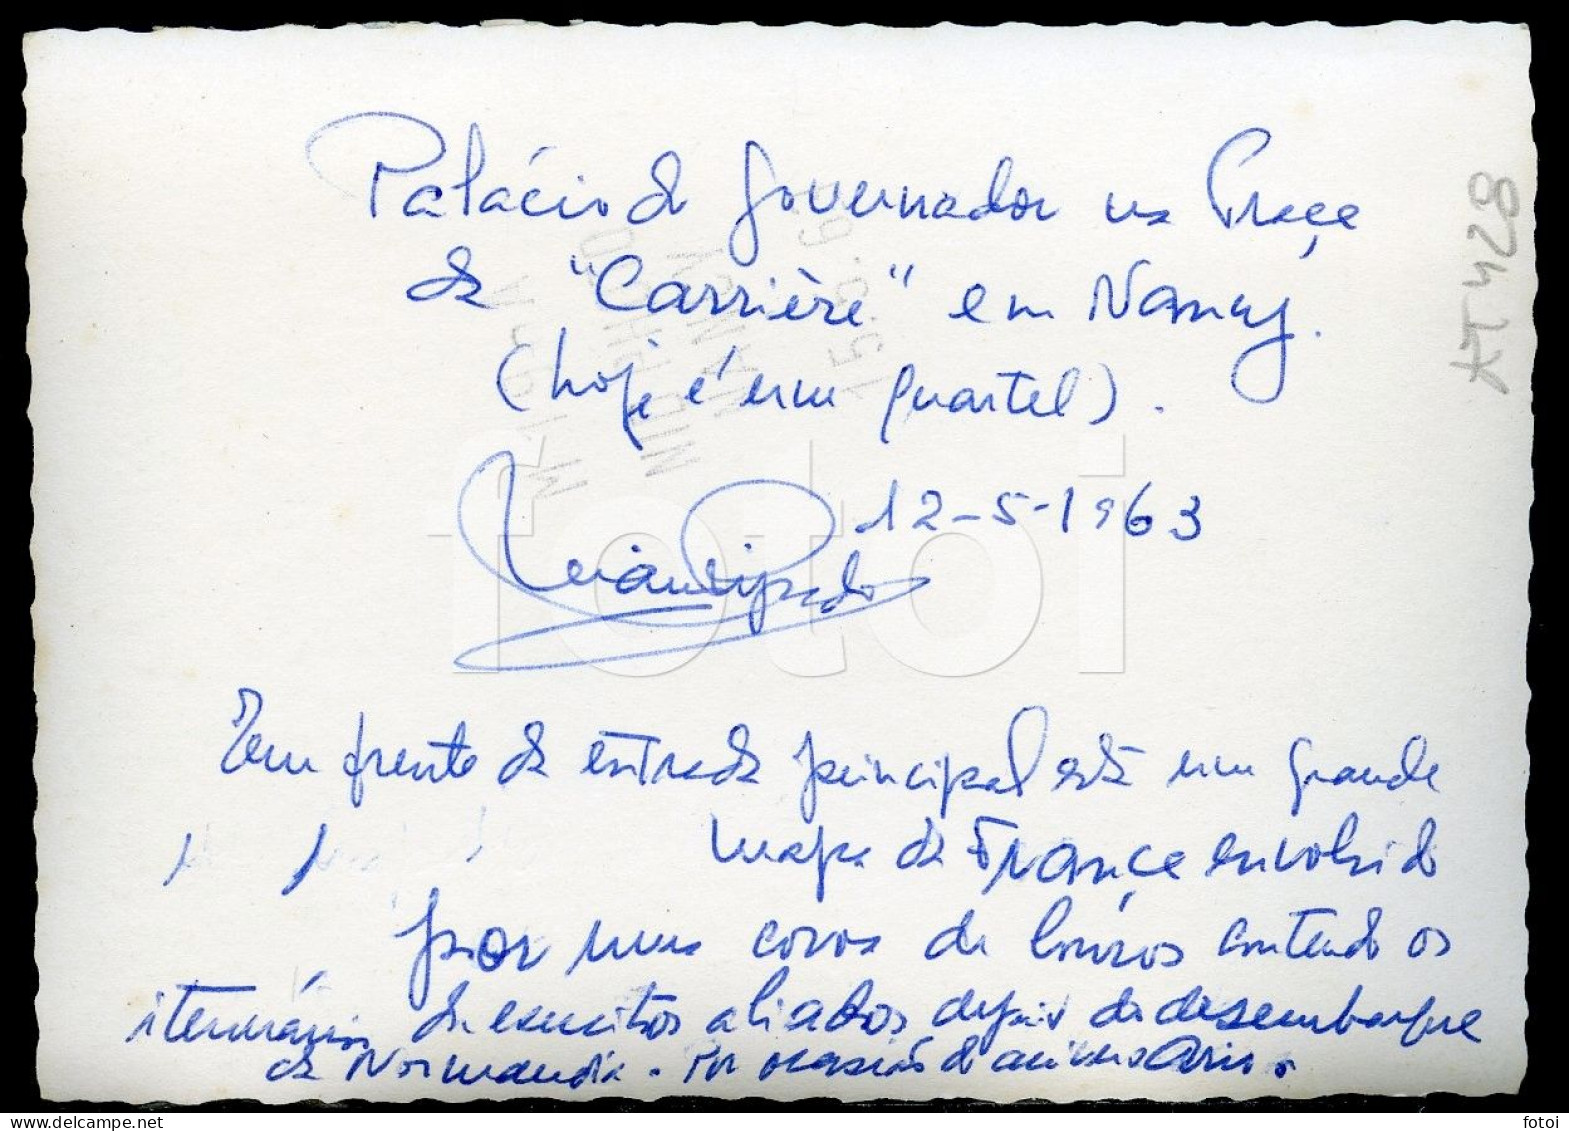 Palácio do Governador na Praça
da "Carrière" em Nancy.
(hoje é um quartel).
12-5-1963
Prado
Tem frente da estrada principal está um grande
mapa da França envolvido
por uma coroa de louros contendo os
itenerários de exercitos aliados depois do desembarque
da Normandia. Por ocasião do aniversário.
AT428
fotoi
www.delcampe.net
fotoi